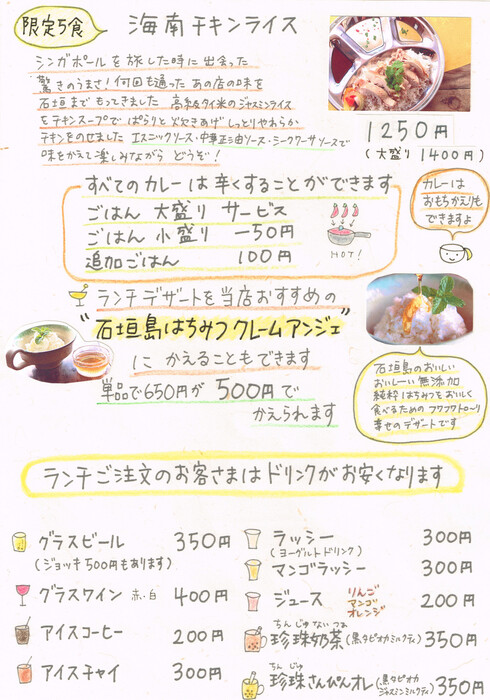 限定5食
海南チキンライス
シンガポールを旅した時に出会った
驚きのうまさ!何回も通ったあの店の味を
石垣までもってきました 高級タイ米のジャスミンライス
をチキンスープでぱらりと炊きあげしっとりやわらか
チキンをのせました エスニックソース・中華正油ソース・シークワーサソースで
味をかえて楽しみながら どうぞ!
1250円
(大盛り 1400円)
すべてのカレーは辛くすることができます
ごはん 大盛り サービス
ごはん 小盛り −50円
追加ごはん 100円
HOT!
カレーは
おもちかえりも
できますよ
ランチデザートを当店おすすめの
"石垣島はちみつクレームアンジェ"
に かえることもできます
単品で650円が 500円で
かえられます
石垣島のおいしい
おいしーい 無添加
純粋はちみつをおいしく
食べるためのフワフワトロ〜リ
幸せのデザートです
ランチご注文のお客さまはドリンクがお安くなります
グラスビール 350円
(ジョッキ500円もあります)
グラスワイン 赤・白 400円
アイスコーヒー 200円
アイスチャイ 300円
ラッシー 300円
(ヨーグルトドリンク)
マンゴラッシー 300円
ジュース りんご マンゴ オレンジ 200円
ちんじゅないつぁ
珍珠奶茶(黒タピオカミルクティ) 350円
ちんじゅ
珍珠さんぴんオレ(黒タピオカジャスミンミルクティ) 350円